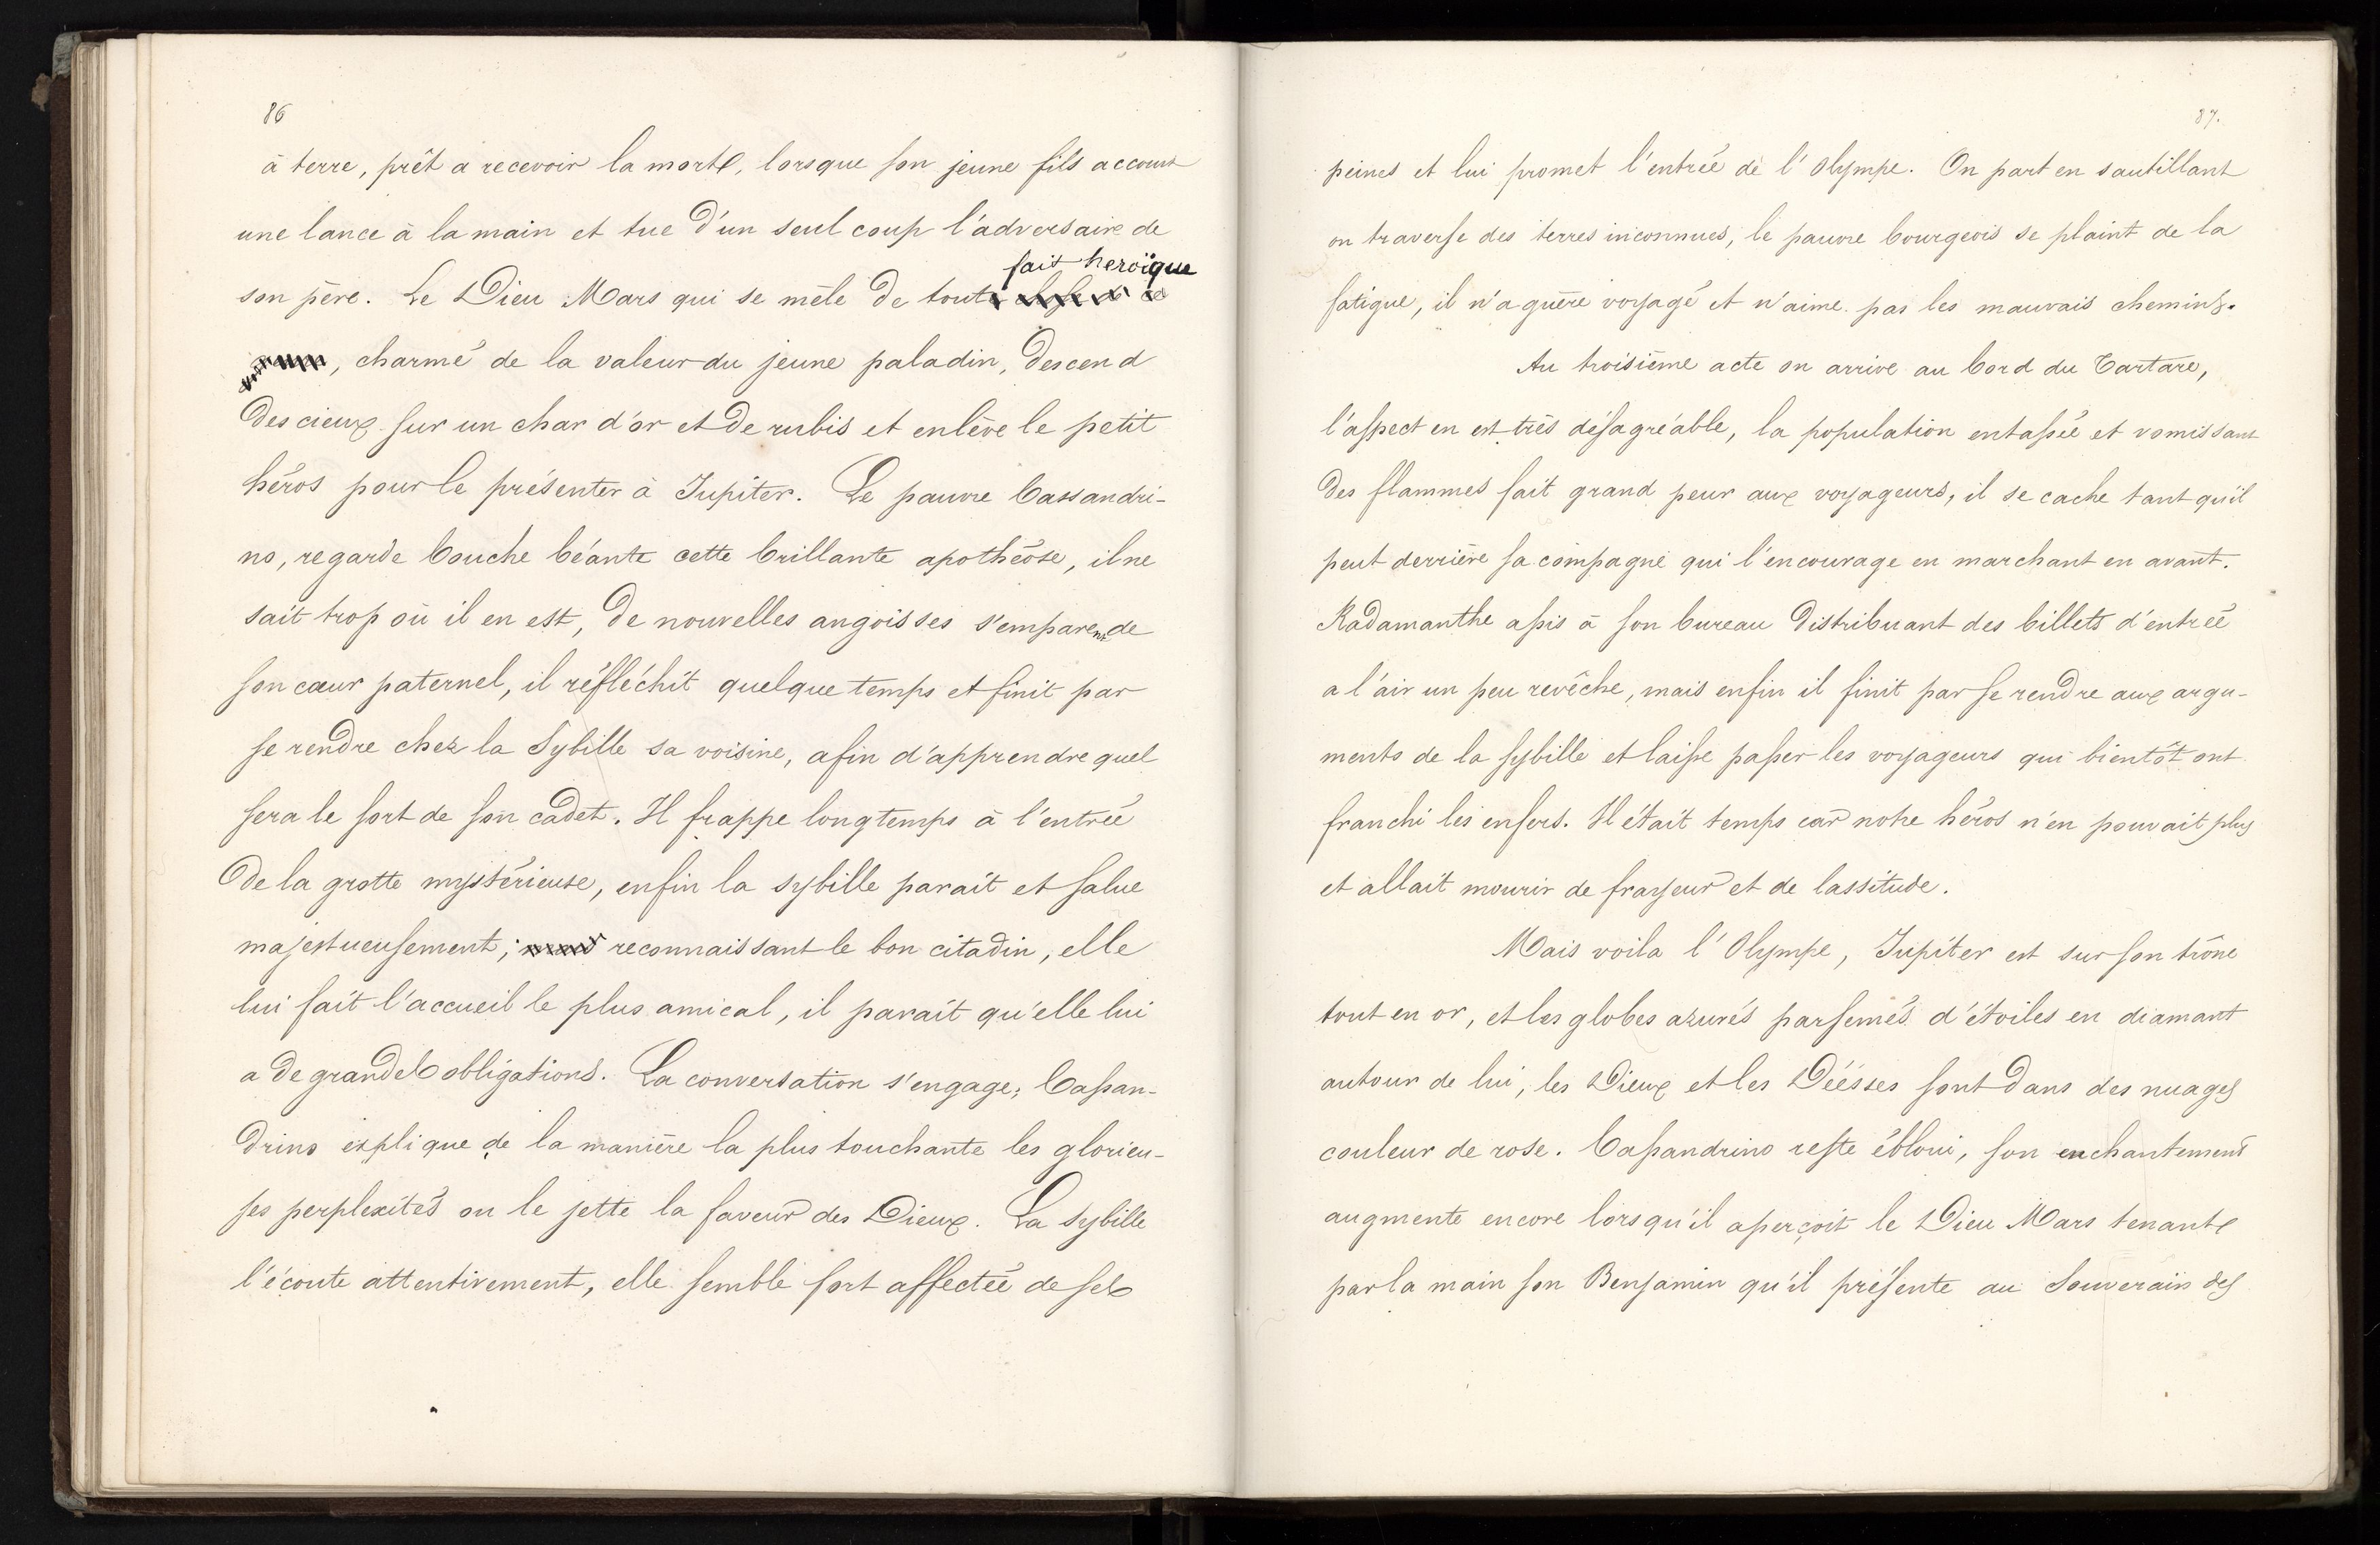 86
à terre, prêt a recevoir la mort, lorsque son jeune fils accourt
une lance à la main et tue d'un seul coup l'adversaire de
fait heroïque
son père. Le Dieu Mars qui se mêle de tout
, charmé de la valeur du jeune paladin, descend
des cieux sur un char d'or et de rubis et enlève le petit
héros pour le présenter à Jupiter. Le pauvre Cassandri-
no, regarde bouche béante cette brillante apothéose, il ne
sait trop où il en est, de nouvelles angoisses s'emparent de
son cœur paternel, il réfléchit quelque temps et finit par
se rendre chez la Sybille sa voisine, afin d'apprendre quel
sera le sort de son cadet. Il frappe longtemps à l'entrée
de la grotte mystérieuse, enfin la sybille paraît et salue
majestueusement; reconnaissant le bon citadin, elle
lui fait l'accueil le plus amical, il paraît qu'elle lui
a de grandes obligations. La conversation s'engage; Cassan-
drino explique de la manière la plus touchante les glorieu-
ses perplexités ou le jette la faveur des Dieux. La Sybille
l'écoute attentivement, elle semble fort affectée de ses
87.
peines et lui promet l'entrée de l'Olympe. On part en sautillant
on traverse des terres inconnues, le pauvre bourgeois se plaint de la
fatigue, il n'a guère voyagé et n'aime pas les mauvais chemins.
Au troisième acte on arrive au bord du Tartare,
l'aspect en est très désagréable, la population entassée et vomissant
des flammes fait grand peur aux voyageurs, il se cache tant qu'il
peut derrière sa compagne qui l'encourage en marchant en avant.
Radamanthe assis à son bureau distribuant des billets d'entrée
a l'air un peu revêche, mais enfin il finit par se rendre aux argu-
ments de la sybille et laisse passer les voyageurs qui bientôt ont
franchi les enfers. Il était temps car notre héros n'en pouvait plus
et allait mourir de frayeur et de lassitude.
Mais voila l'Olympe, Jupiter est sur son trône
tout en or, et les globes azurés parsemés d'étoiles en diamant
autour de lui, les Dieux et les Déésses sont dans des nuages
couleur de rose. Cassandrino reste ébloui, son enchantement
augmente encore lorsqu'il aperçoit le Dieu Mars tenant
par la main son Benjamin qu'il présente au Souverain des